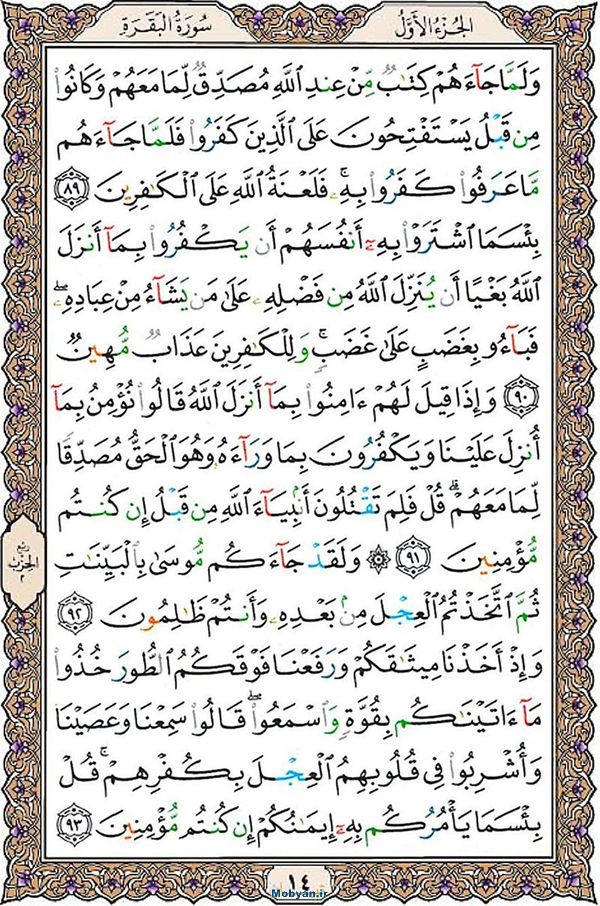 الجُزْءُ الأَوَّلُ
سُورَةُ البَقَرَةِ
وَلَمَّا جَآءَهُمْ كِتَٰبٌ مِّنْ عِندِ ٱللَّهِ مُصَدِّقٌ لِّمَا مَعَهُمْ وَكَانُوا۟
مِن قَبْلُ يَسْتَفْتِحُونَ عَلَى ٱلَّذِينَ كَفَرُوا۟ فَلَمَّا جَآءَهُم
مَّا عَرَفُوا۟ كَفَرُوا۟ بِهِۦ ۚ فَلَعْنَةُ ٱللَّهِ عَلَى ٱلْكَٰفِرِينَ ٨٩
بِئْسَمَا ٱشْتَرَوْا۟ بِهِۦٓ أَنفُسَهُمْ أَن يَكْفُرُوا۟ بِمَآ أَنزَلَ
ٱللَّهُ بَغْيًا أَن يُنَزِّلَ ٱللَّهُ مِن فَضْلِهِۦ عَلَىٰ مَن يَشَآءُ مِنْ عِبَادِهِۦ ۖ
فَبَآءُو بِغَضَبٍ عَلَىٰ غَضَبٍ ۚ وَلِلْكَٰفِرِينَ عَذَابٌ مُّهِينٌ
٩٠ وَإِذَا قِيلَ لَهُمْ ءَامِنُوا۟ بِمَآ أَنزَلَ ٱللَّهُ قَالُوا۟ نُؤْمِنُ بِمَآ
أُنزِلَ عَلَيْنَا وَيَكْفُرُونَ بِمَا وَرَآءَهُۥ وَهُوَ ٱلْحَقُّ مُصَدِّقًا
لِّمَا مَعَهُمْ ۗ قُلْ فَلِمَ تَقْتُلُونَ أَنۢبِيَآءَ ٱللَّهِ مِن قَبْلُ إِن كُنتُم
مُّؤْمِنِينَ ٩١ ۞ وَلَقَدْ جَآءَكُم مُّوسَىٰ بِٱلْبَيِّنَٰتِ
ثُمَّ ٱتَّخَذْتُمُ ٱلْعِجْلَ مِنۢ بَعْدِهِۦ وَأَنتُمْ ظَٰلِمُونَ ٩٢
وَإِذْ أَخَذْنَا مِيثَٰقَكُمْ وَرَفَعْنَا فَوْقَكُمُ ٱلطُّورَ خُذُوا۟
مَآ ءَاتَيْنَٰكُم بِقُوَّةٍ وَٱسْمَعُوا۟ ۖ قَالُوا۟ سَمِعْنَا وَعَصَيْنَا
وَأُشْرِبُوا۟ فِى قُلُوبِهِمُ ٱلْعِجْلَ بِكُفْرِهِمْ ۚ قُلْ
بِئْسَمَا يَأْمُرُكُم بِهِۦٓ إِيمَٰنُكُمْ إِن كُنتُم مُّؤْمِنِينَ ٩٣
ربع
الحزب
٢
١٤
Mobyan.ir